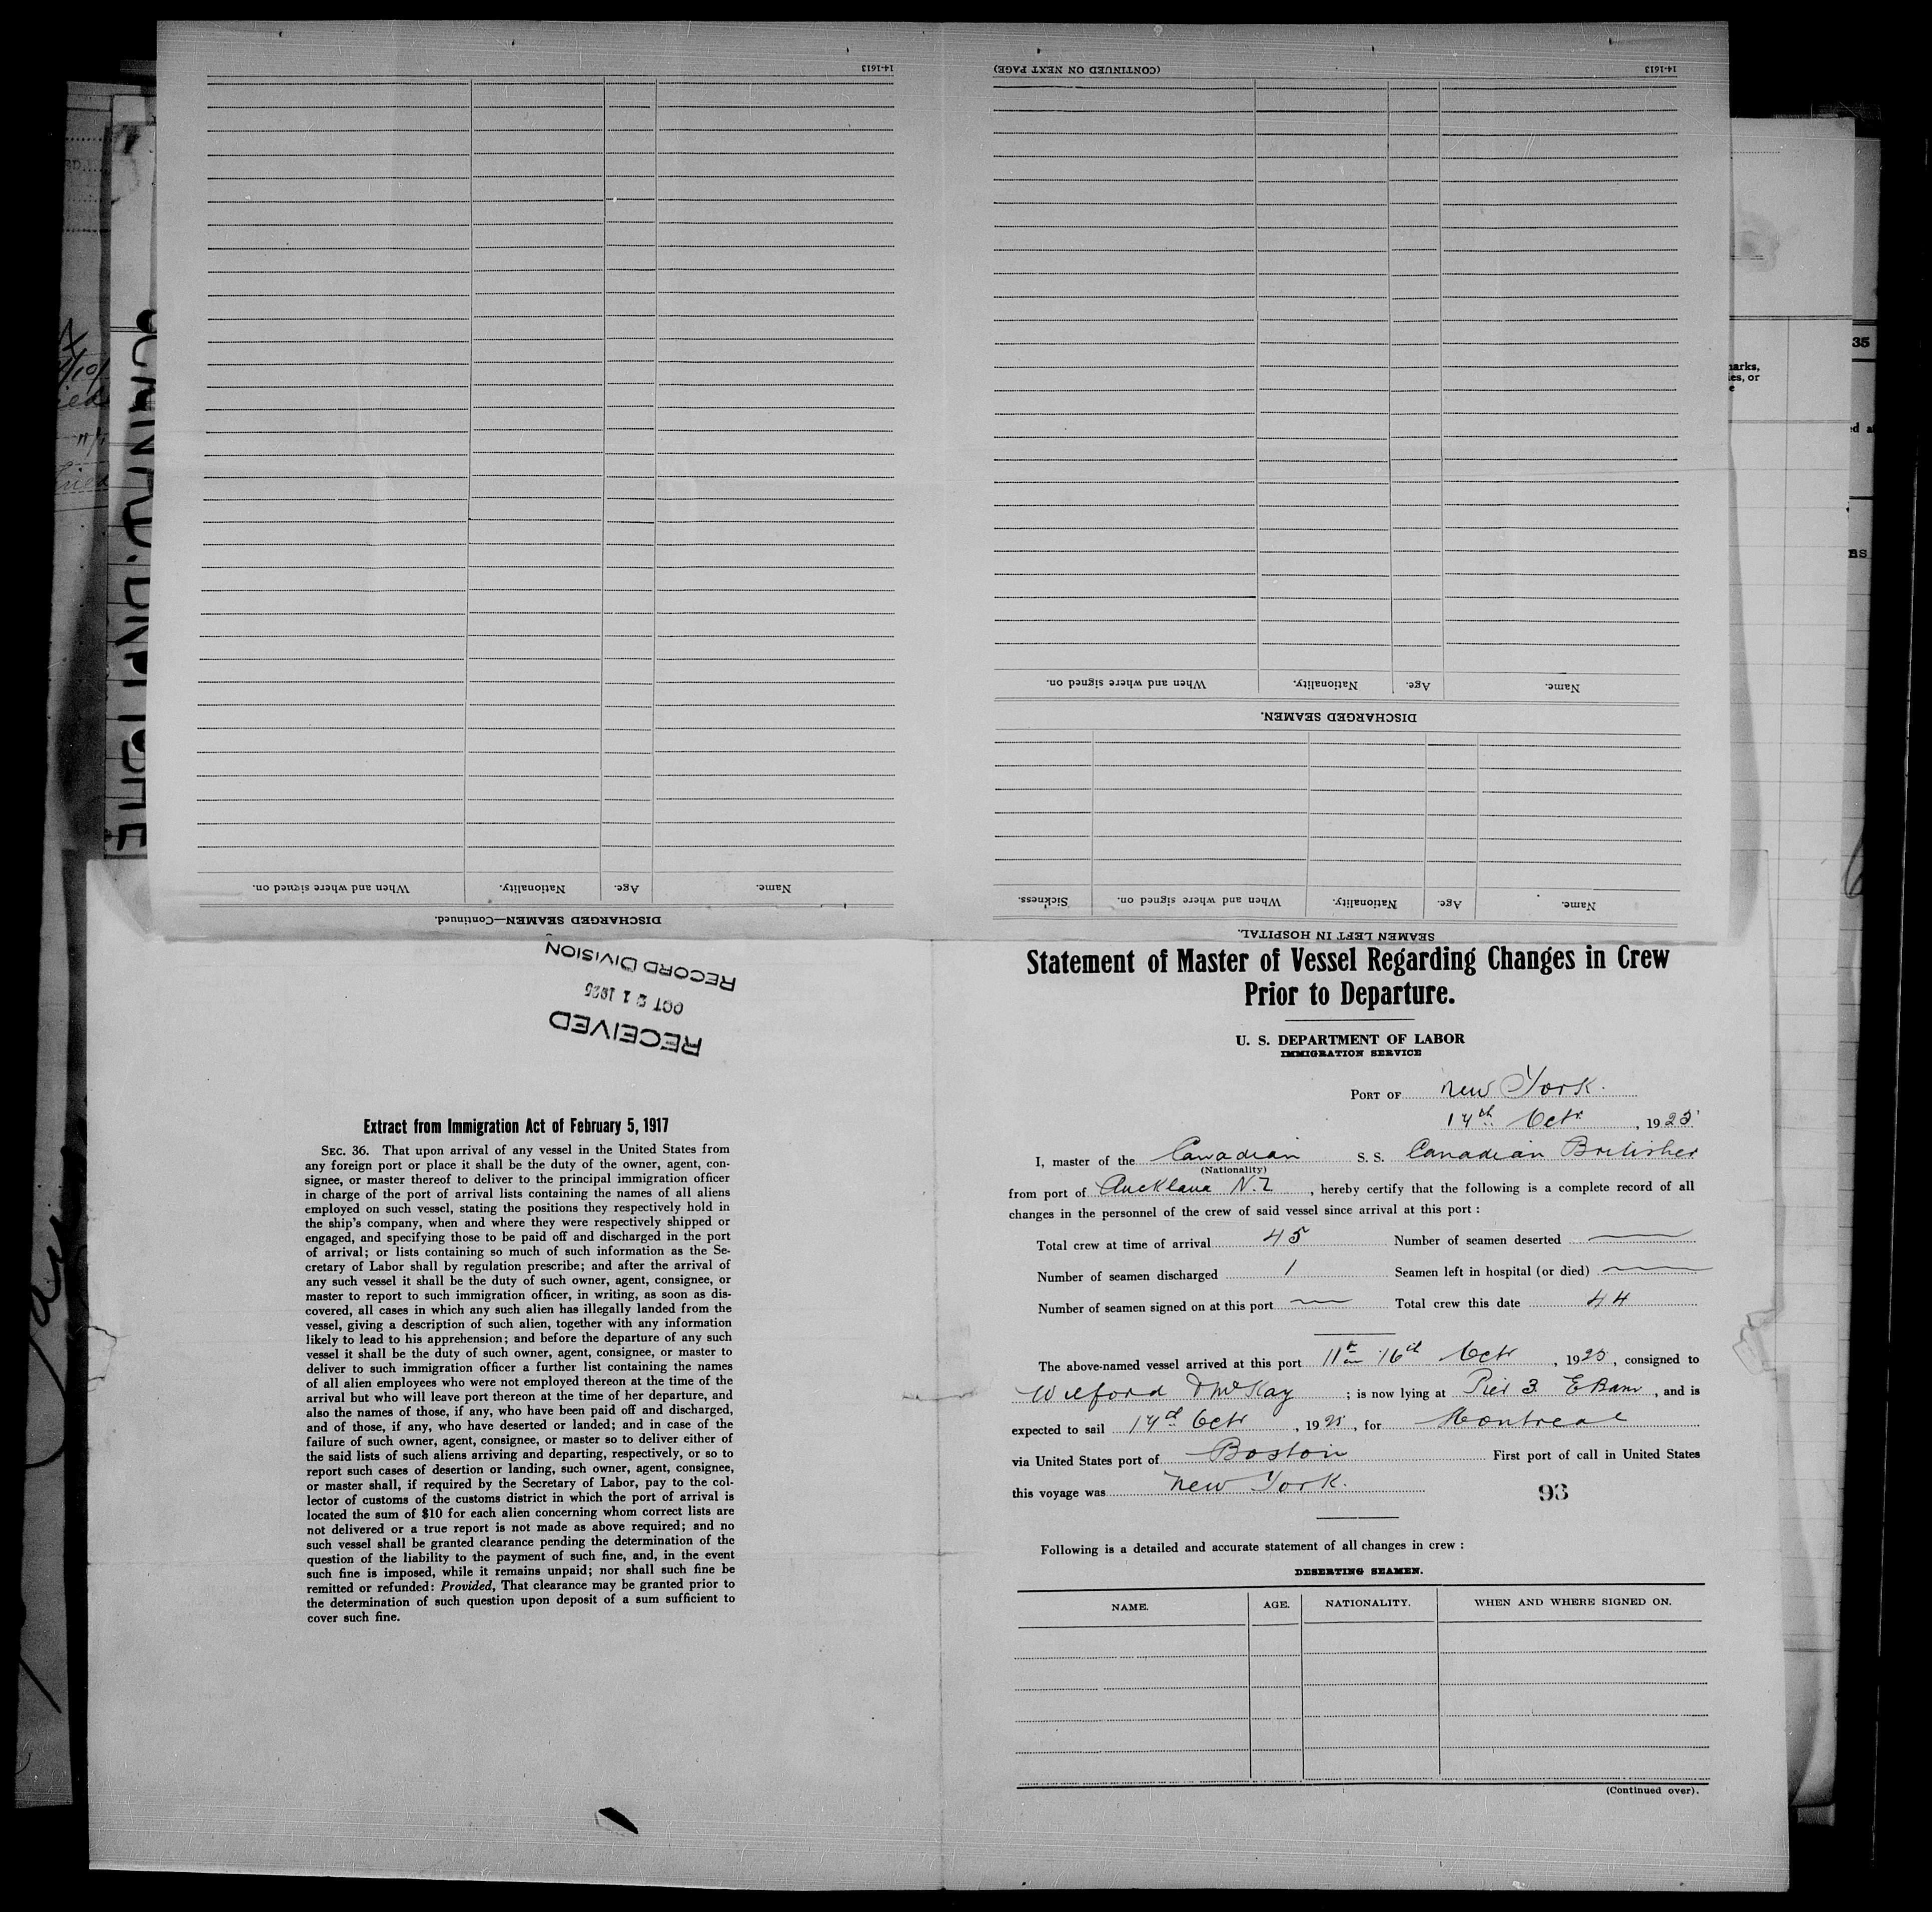 14-1613
(CONTINUED ON NEXT PAGE)
14-1613
When and where signed on.
Nationality.
Age.
Name.
DISCHARGED SEAMEN.
When and where signed on.
Nationality.
Age.
Name.
DISCHARGED SEAMEN—Continued.
Sickness.
When and where signed on.
Nationality.
Age.
Name.
SEAMEN LEFT IN HOSPITAL.
RECEIVED
OCT 21 1925
RECORD DIVISION
Extract from Immigration Act of February 5, 1917
SEC. 36. That upon arrival of any vessel in the United States from
any foreign port or place it shall be the duty of the owner, agent, con-
signee, or master thereof to deliver to the principal immigration officer
in charge of the port of arrival lists containing the names of all aliens
employed on such vessel, stating the positions they respectively hold in
the ship's company, when and where they were respectively shipped or
engaged, and specifying those to be paid off and discharged in the port
of arrival; or lists containing so much of such information as the Se-
cretary of Labor shall by regulation prescribe; and after the arrival of
any such vessel it shall be the duty of such owner, agent, consignee, or
master to report to such immigration officer, in writing, as soon as dis-
covered, all cases in which any such alien has illegally landed from the
vessel, giving a description of such alien, together with any information
likely to lead to his apprehension; and before the departure of any such
vessel it shall be the duty of such owner, agent, consignee, or master to
deliver to such immigration officer a further list containing the names
of all alien employees who were not employed thereon at the time of the
arrival but who will leave port thereon at the time of her departure, and
also the names of those, if any, who have been paid off and discharged,
and of those, if any, who have deserted or landed; and in case of the
failure of such owner, agent, consignee, or master so to deliver either of
the said lists of such aliens arriving and departing, respectively, or so to
report such cases of desertion or landing, such owner, agent, consignee,
or master shall, if required by the Secretary of Labor, pay to the col-
lector of customs of the customs district in which the port of arrival is
located the sum of $10 for each alien concerning whom correct lists are
not delivered or a true report is not made as above required; and no
such vessel shall be granted clearance pending the determination of the
question of the liability to the payment of such fine, and, in the event
such fine is imposed, while it remains unpaid; nor shall such fine be
remitted or refunded: Provided, That clearance may be granted prior to
the determination of such question upon deposit of a sum sufficient to
cover such fine.
Statement of Master of Vessel Regarding Changes in Crew
Prior to Departure.
U. S. DEPARTMENT OF LABOR
IMMIGRATION SERVICE
PORT OF New York.
17th Oct, 1925
I, master of the Canadian S. S. Canadian Britisher
(Nationality)
from port of Auckland N.Z, hereby certify that the following is a complete record of all
changes in the personnel of the crew of said vessel since arrival at this port:
Total crew at time of arrival 45 Number of seamen deserted
Number of seamen discharged 1 Seamen left in hospital (or died)
Number of seamen signed on at this port Total crew this date 44
The above-named vessel arrived at this port 11 am 16th Oct, 1925, consigned to
McKay; is now lying at Pier 3, and is
expected to sail 17th Oct, 1925, for Montreal
via United States port of Boston First port of call in United States
this voyage was New York.
93
Following is a detailed and accurate statement of all changes in crew:
DESERTING SEAMEN.
NAME. AGE. NATIONALITY. WHEN AND WHERE SIGNED ON.
(Continued over).